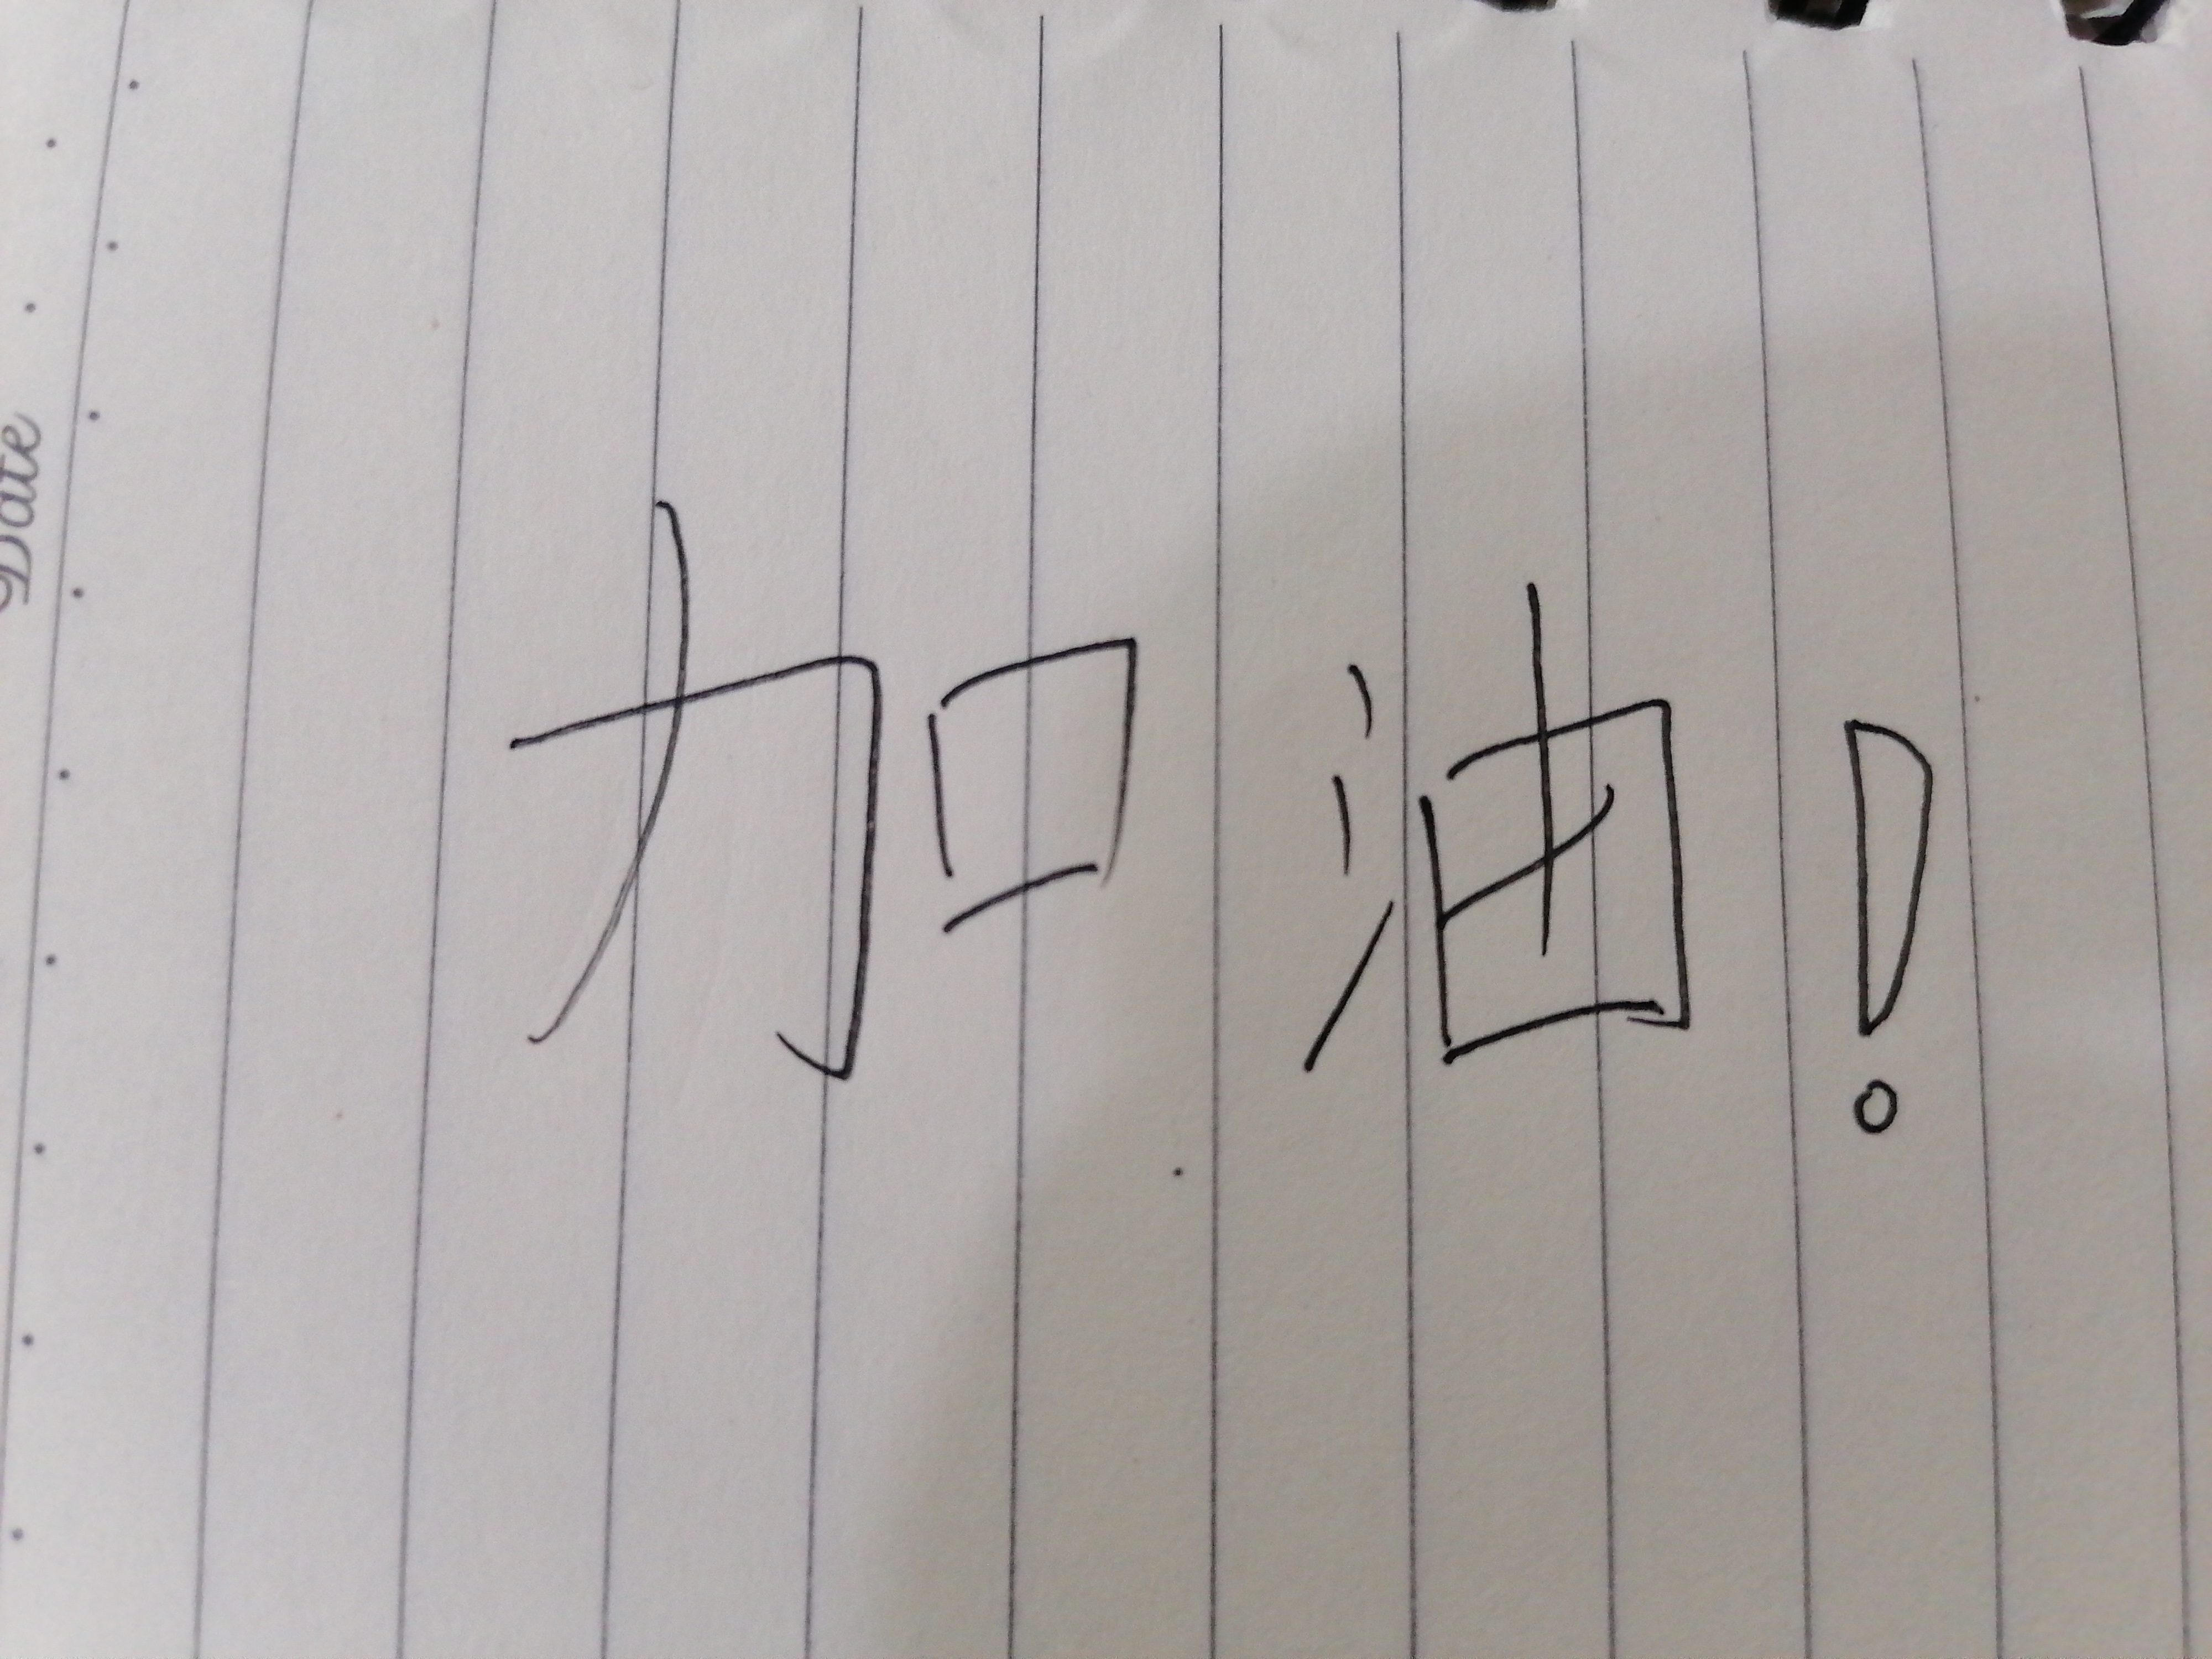 Date
加油!